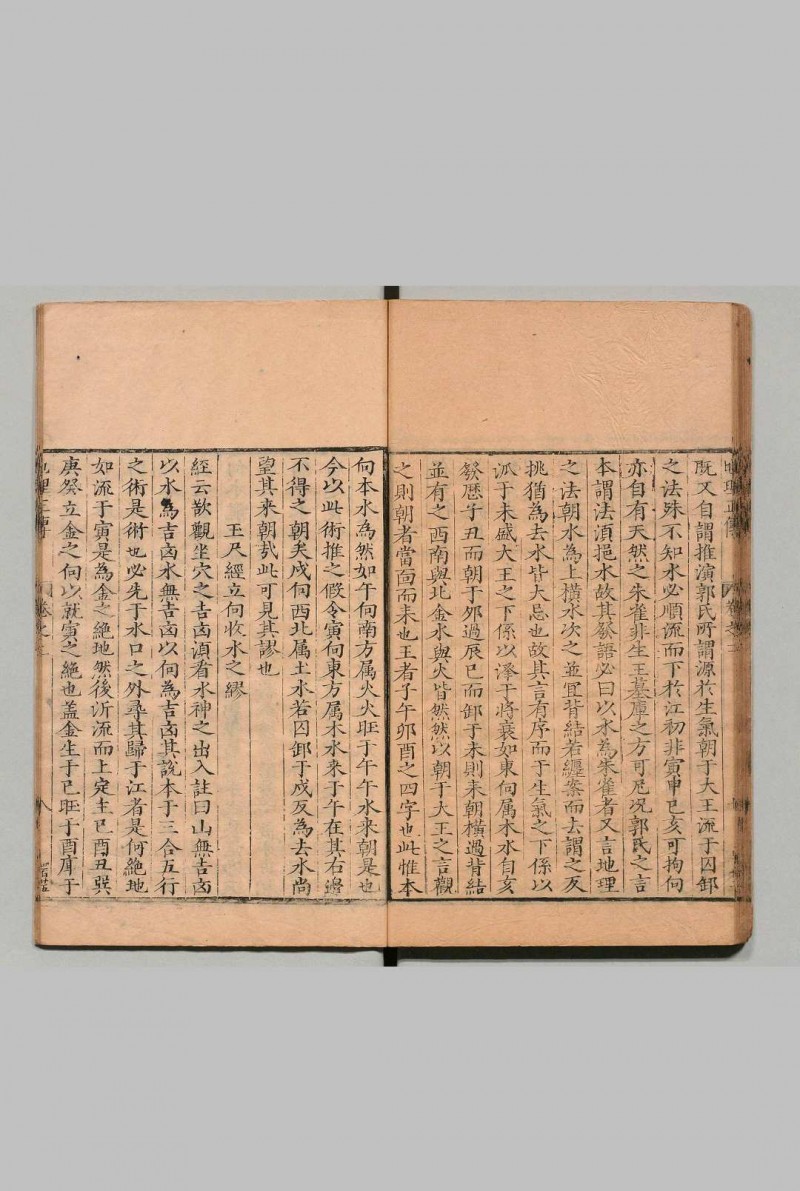 既又自謂推演郭氏所謂源於生氣朝于大王流于囚卸
之法殊不知水必順流而下於江初非寅申巳亥可拘向
亦自有天然之朱雀非生王墓庫之方可尼况郭氏之言
本謂法湏挹水故其發語必曰以水為朱雀者又言地理
之法朝水為上橫水次之並宜背結若纒案而去謂之反
挑猶為去水皆大忌也故其言有序而于生氣之下係以
派于未盛大王之下係以澤于將衰如東向属木水自亥
發歷子丑而朝于夘過辰巳而卸于未則未朝橫過背結
並有之西南與北金水與火皆然然以朝于大王之言觀
之則朝者當面而未也王者子午卯酉之四字也此惟本
向本水為然如午向南方属火火旺于午午水来朝是也
今以此術推之假令寅向東方属木水来于午在其右邊
不得之朝矣戍向西北属土水若囚卸于戍反為去水尚
望其来朝㢤此可見其謬也
玉尺經立向收水之繆
經云欲觀坐穴之吉㐫湏看水神之出入註曰山無吉㐫
以水為吉㐫水無吉㐫以向為吉㐫其說本于三合五行
之術是術也必先于水口之外尋其歸于江者是何絶地
如流于寅是為金之絶地然後沂流而上定主巳酉丑巽
庚癸立金之向以就寅之絶也盖金生于巳旺于酉庫于
地理正傳
卷之三
八